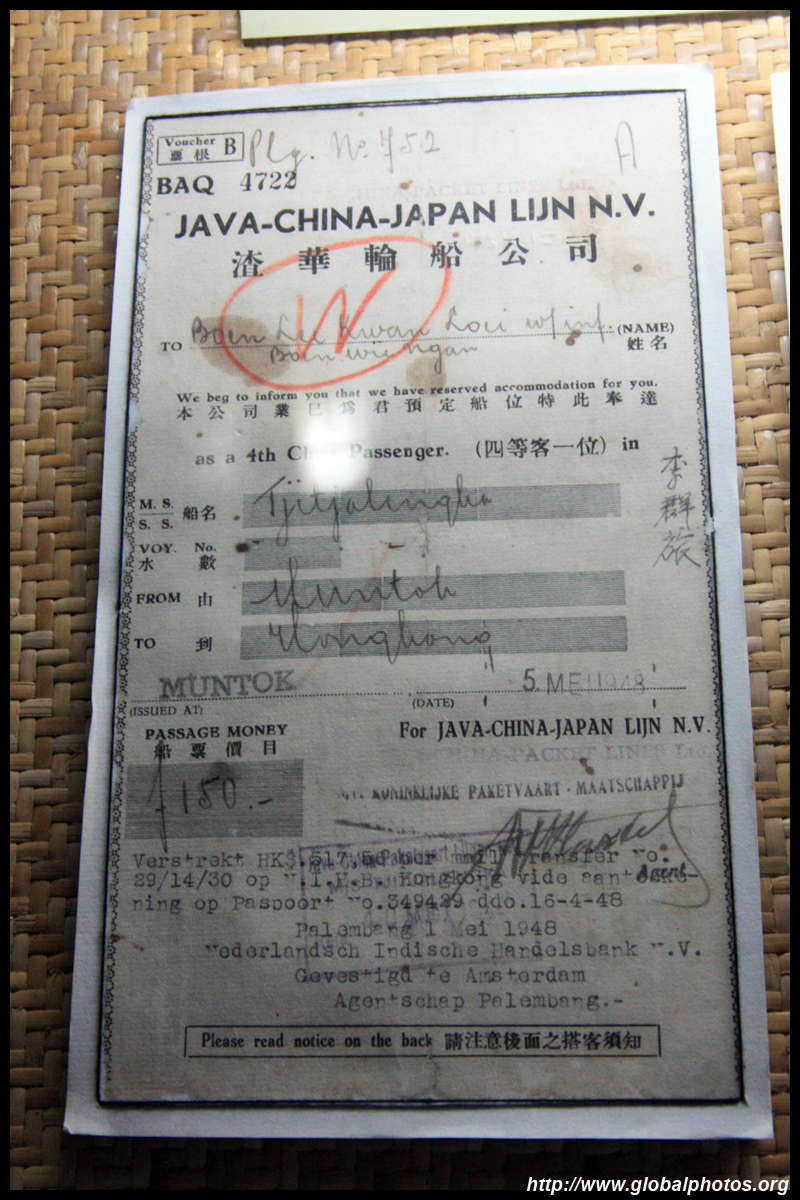 Voucher B
票根
Plg. No. 752
A
BAQ 4722
CHINA-PACKET LINES Ltd.
JAVA-CHINA-JAPAN LIJN N.V.
渣華輪船公司
TO Boen Lee Kwan Loei w/inf. (NAME)
姓名
We beg to inform you that we have reserved accommodation for you.
本公司業已爲君預定船位特此奉達
as a 4th Passenger. (四等客一位) in
李群旅
M. S.
S. S. 船名 Tjitjalengka
VOY. No. -
水數
FROM 由 Muntok
TO 到 Hongkong
MUNTOK 5. MEI 1948
(ISSUED AT) (DATE)
PASSAGE MONEY For JAVA-CHINA-JAPAN LIJN N.V.
船票價目 CHINA-PACKET LINES Ltd.
f 150.-
KONINKLIJKE PAKETVAART - MAATSCHAPPIJ
Verstrekt HK$.517,50 per mail transfer No.
Agent
29/14/30 op N.I.H.B. Hongkong vide aanteke-
ning op Paspoort No.349429 ddo.16-4-48
Palembang 1 Mei 1948
Nederlandsch Indische Handelsbank N.V.
Gevestigd te Amsterdam
Agentschap Palembang.-
Please read notice on the back 請注意後面之搭客須知
http://www.globalphotos.org